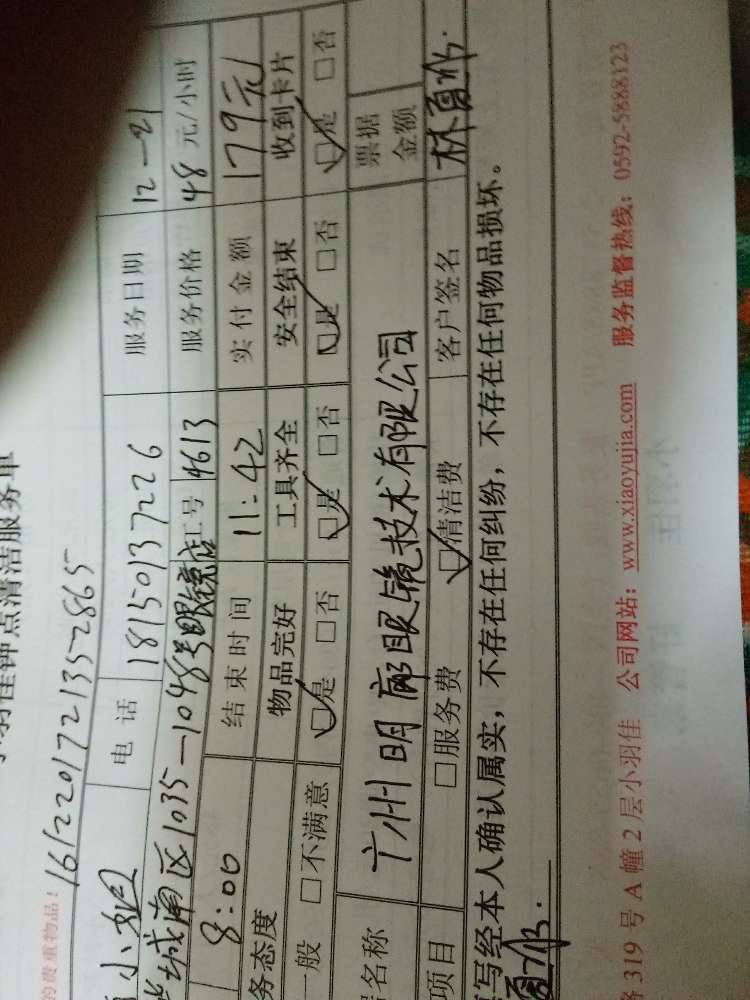 钟点清洁服务单
的贵重物品！
161220172135 2865
小姐 电话 18150137226 服务日期 12-21
城南区1035-1048号眼镜店 工号 4613 服务价格 48元/小时
8:00 结束时间 11:42 实付金额 179元
务态度 物品完好 工具齐全 安全结束 收到卡片
一般 □不满意 □是 □否 □是 □否 □是 □否 □是 □否
名称 广州明廊眼镜技术有限公司 票据金额
项目 □服务费 □清洁费 客户签名 林
写经本人确认属实，不存在任何纠纷，不存在任何物品损坏。
319号A幢2层小羽佳 公司网站：www.xiaoyujia.com 服务监督热线：0592-5888123